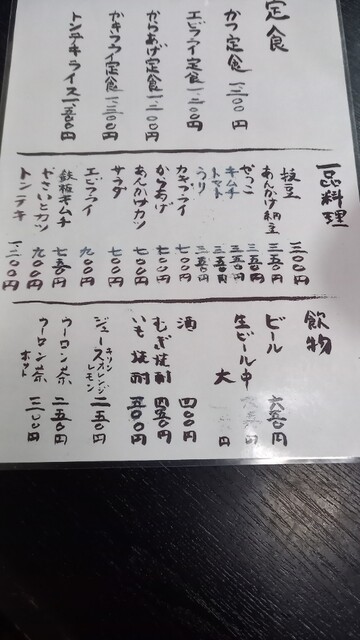 定食
かつ定食 一、三〇〇円
エビフライ定食 一、二〇〇円
からあげ定食 一、二〇〇円
かきフライ定食 一、三〇〇円
トンテキライス 一、五〇〇円
一品料理
枝豆 三〇〇円
あんかけ納豆 三五〇円
やっこ 三五〇円
キムチ 三五〇円
トマト 三五〇円
うり 三五〇円
カキフライ 七〇〇円
からあげ 七〇〇円
あんかけカツ 七〇〇円
サラダ 七〇〇円
エビフライ 九〇〇円
鉄板キムチ 七五〇円
やさいとカツ 九〇〇円
トンテキ 一、二〇〇円
飲物
ビール 六五〇円
生ビール 中
大
酒 四〇〇円
むぎ焼酎 四五〇円
いも焼酎 五〇〇円
ジュース キリン オレンジ レモン 二五〇円
ウーロン茶 二五〇円
ウーロン茶 ホット 三〇〇円